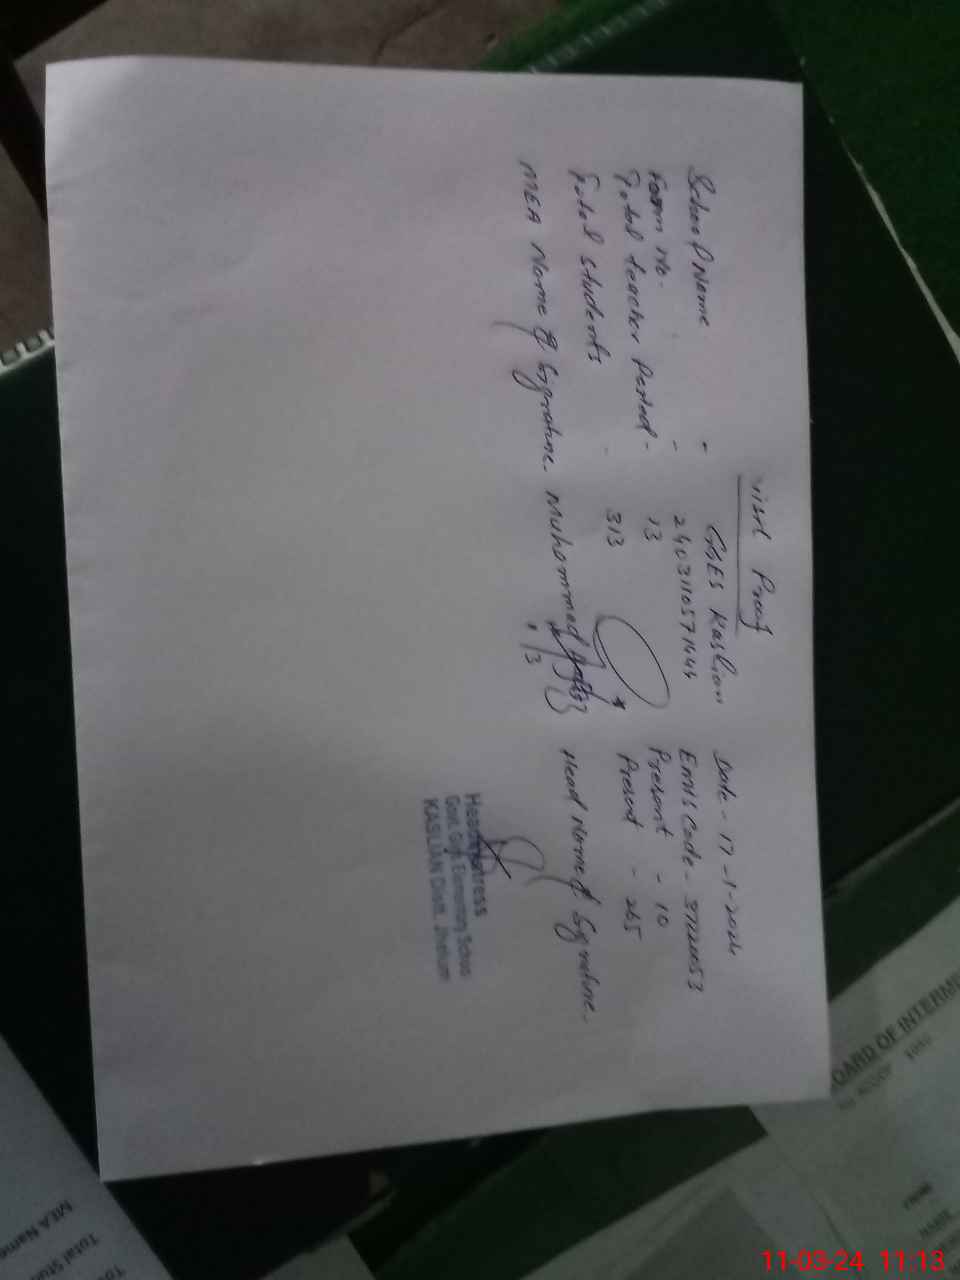 Visit Proof
School Name - GGES Kaslian Date - 17-1-2024
Form No. - 240311057164 EMIS Code - 37220053
Total teacher Posted - 13 Present - 10
Total Students - 313 Present - 265
MEA Name & Signature. Muhammad Head Name & Signature.
Headmistress
Govt. Girls Elementary School
KASLIAN Distt. Jhelum
BOARD OF INTERME
MEA Name
Total Stu
NAME
11-03-24 11:13